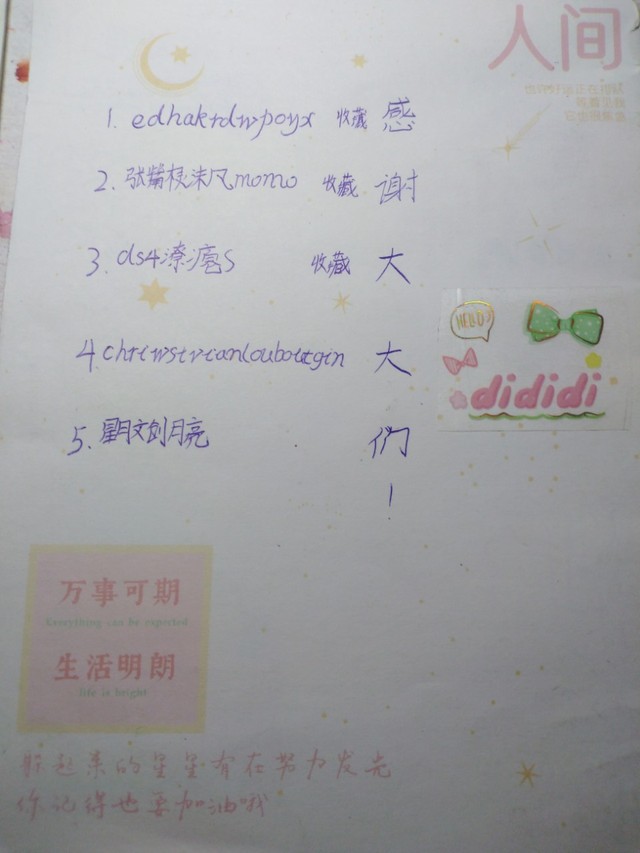 人间
1. edhakrdwpoyx 收藏 感
2. momo 收藏 谢
3. ds4潦 S 收藏 大
4. chriwstvianlouboutgin 大
5. 星月文创月亮 们
!
HELLO
dididi
万事可期
Everything can be expected
生活明朗
life is bright
躲起来的星星有在努力发光
你记得也要加油哦